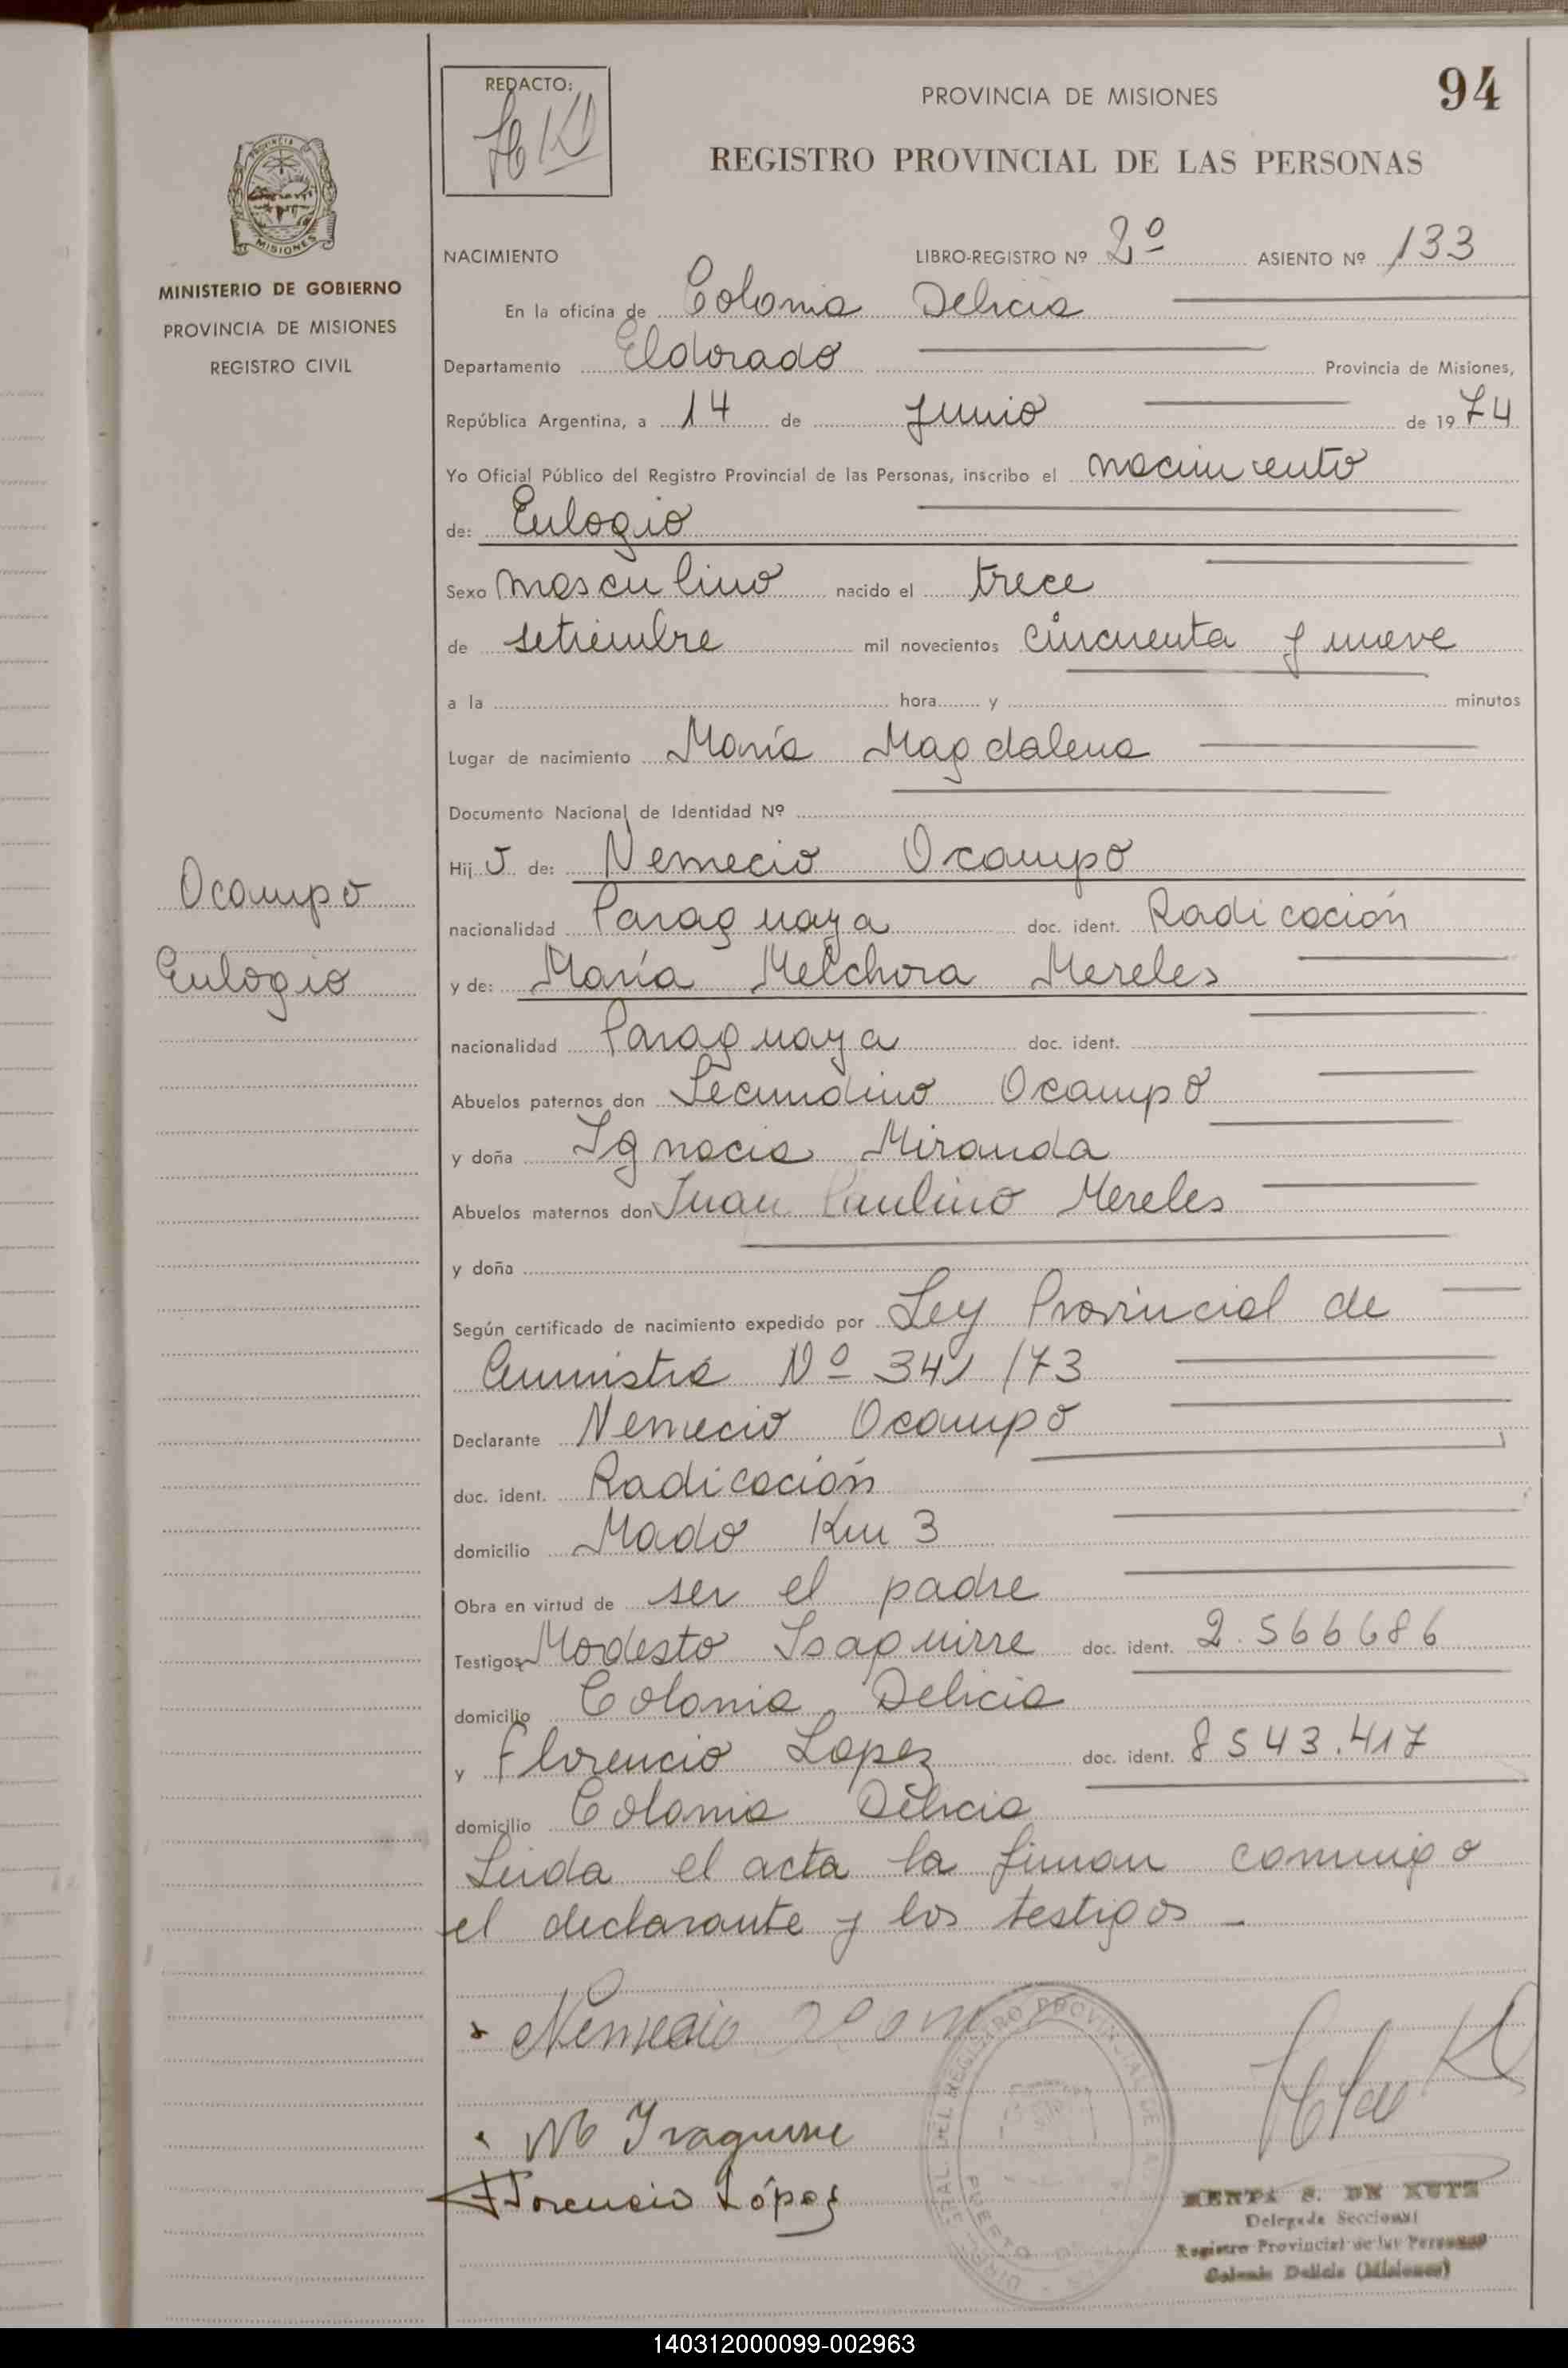 94
REDACTO:
PROVINCIA DE MISIONES
REGISTRO PROVINCIAL DE LAS PERSONAS
PROVINCIA
MISIONES
MINISTERIO DE GOBIERNO
PROVINCIA DE MISIONES
REGISTRO CIVIL
NACIMIENTO LIBRO-REGISTRO Nº 2º ASIENTO Nº 133
En la oficina de Colonia Delicia
Departamento Eldorado Provincia de Misiones,
República Argentina, a 14 de junio de 1974
Yo Oficial Público del Registro Provincial de las Personas, inscribo el nacimiento
de: Eulogio
Sexo masculino nacido el trece
de setiembre mil novecientos cincuenta y nueve
a la hora y minutos
Lugar de nacimiento María Magdalena
Documento Nacional de Identidad Nº
Hijo de: Nemecio Ocampo
Ocampo
nacionalidad Paraguaya doc. ident. Radicación
Eulogio
y de: María Melchora Mereles
nacionalidad Paraguaya doc. ident.
Abuelos paternos don Secundino Ocampo
y doña Ignacia Miranda
Abuelos maternos don Juan Paulino Mereles
y doña
Según certificado de nacimiento expedido por Ley Provincial de
Amnistía Nº 341/73
Declarante Nemecio Ocampo
doc. ident. Radicación
domicilio Mado Km 3
Obra en virtud de ser el padre
Testigos Modesto Isaguirre doc. ident. 2.566686
domicilio Colonia Delicia
y Florencio Lopez doc. ident. 8543.417
domicilio Colonia Delicia
Leida el acta la firman conmigo
el declarante y los testigos
Nemecio
M Ysaguirre
Florencio López
DEL REGISTRO PROVINCIAL DE
S. DE KUTZ
Delegada Seccional
Registro Provincial de las Personas
Colonia Delicia (Misiones)
140312000099-002963